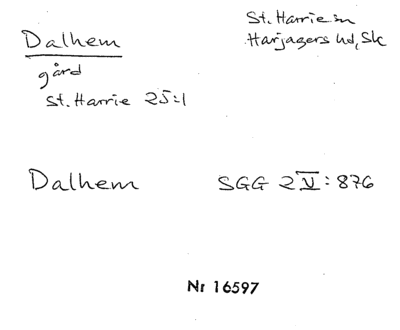 Dalhem
gård
St. Harrie 25:1
St. Harrie sn
Harjagers hd, Sk
Dalhem SGG 2 V: 876
Nr 16597